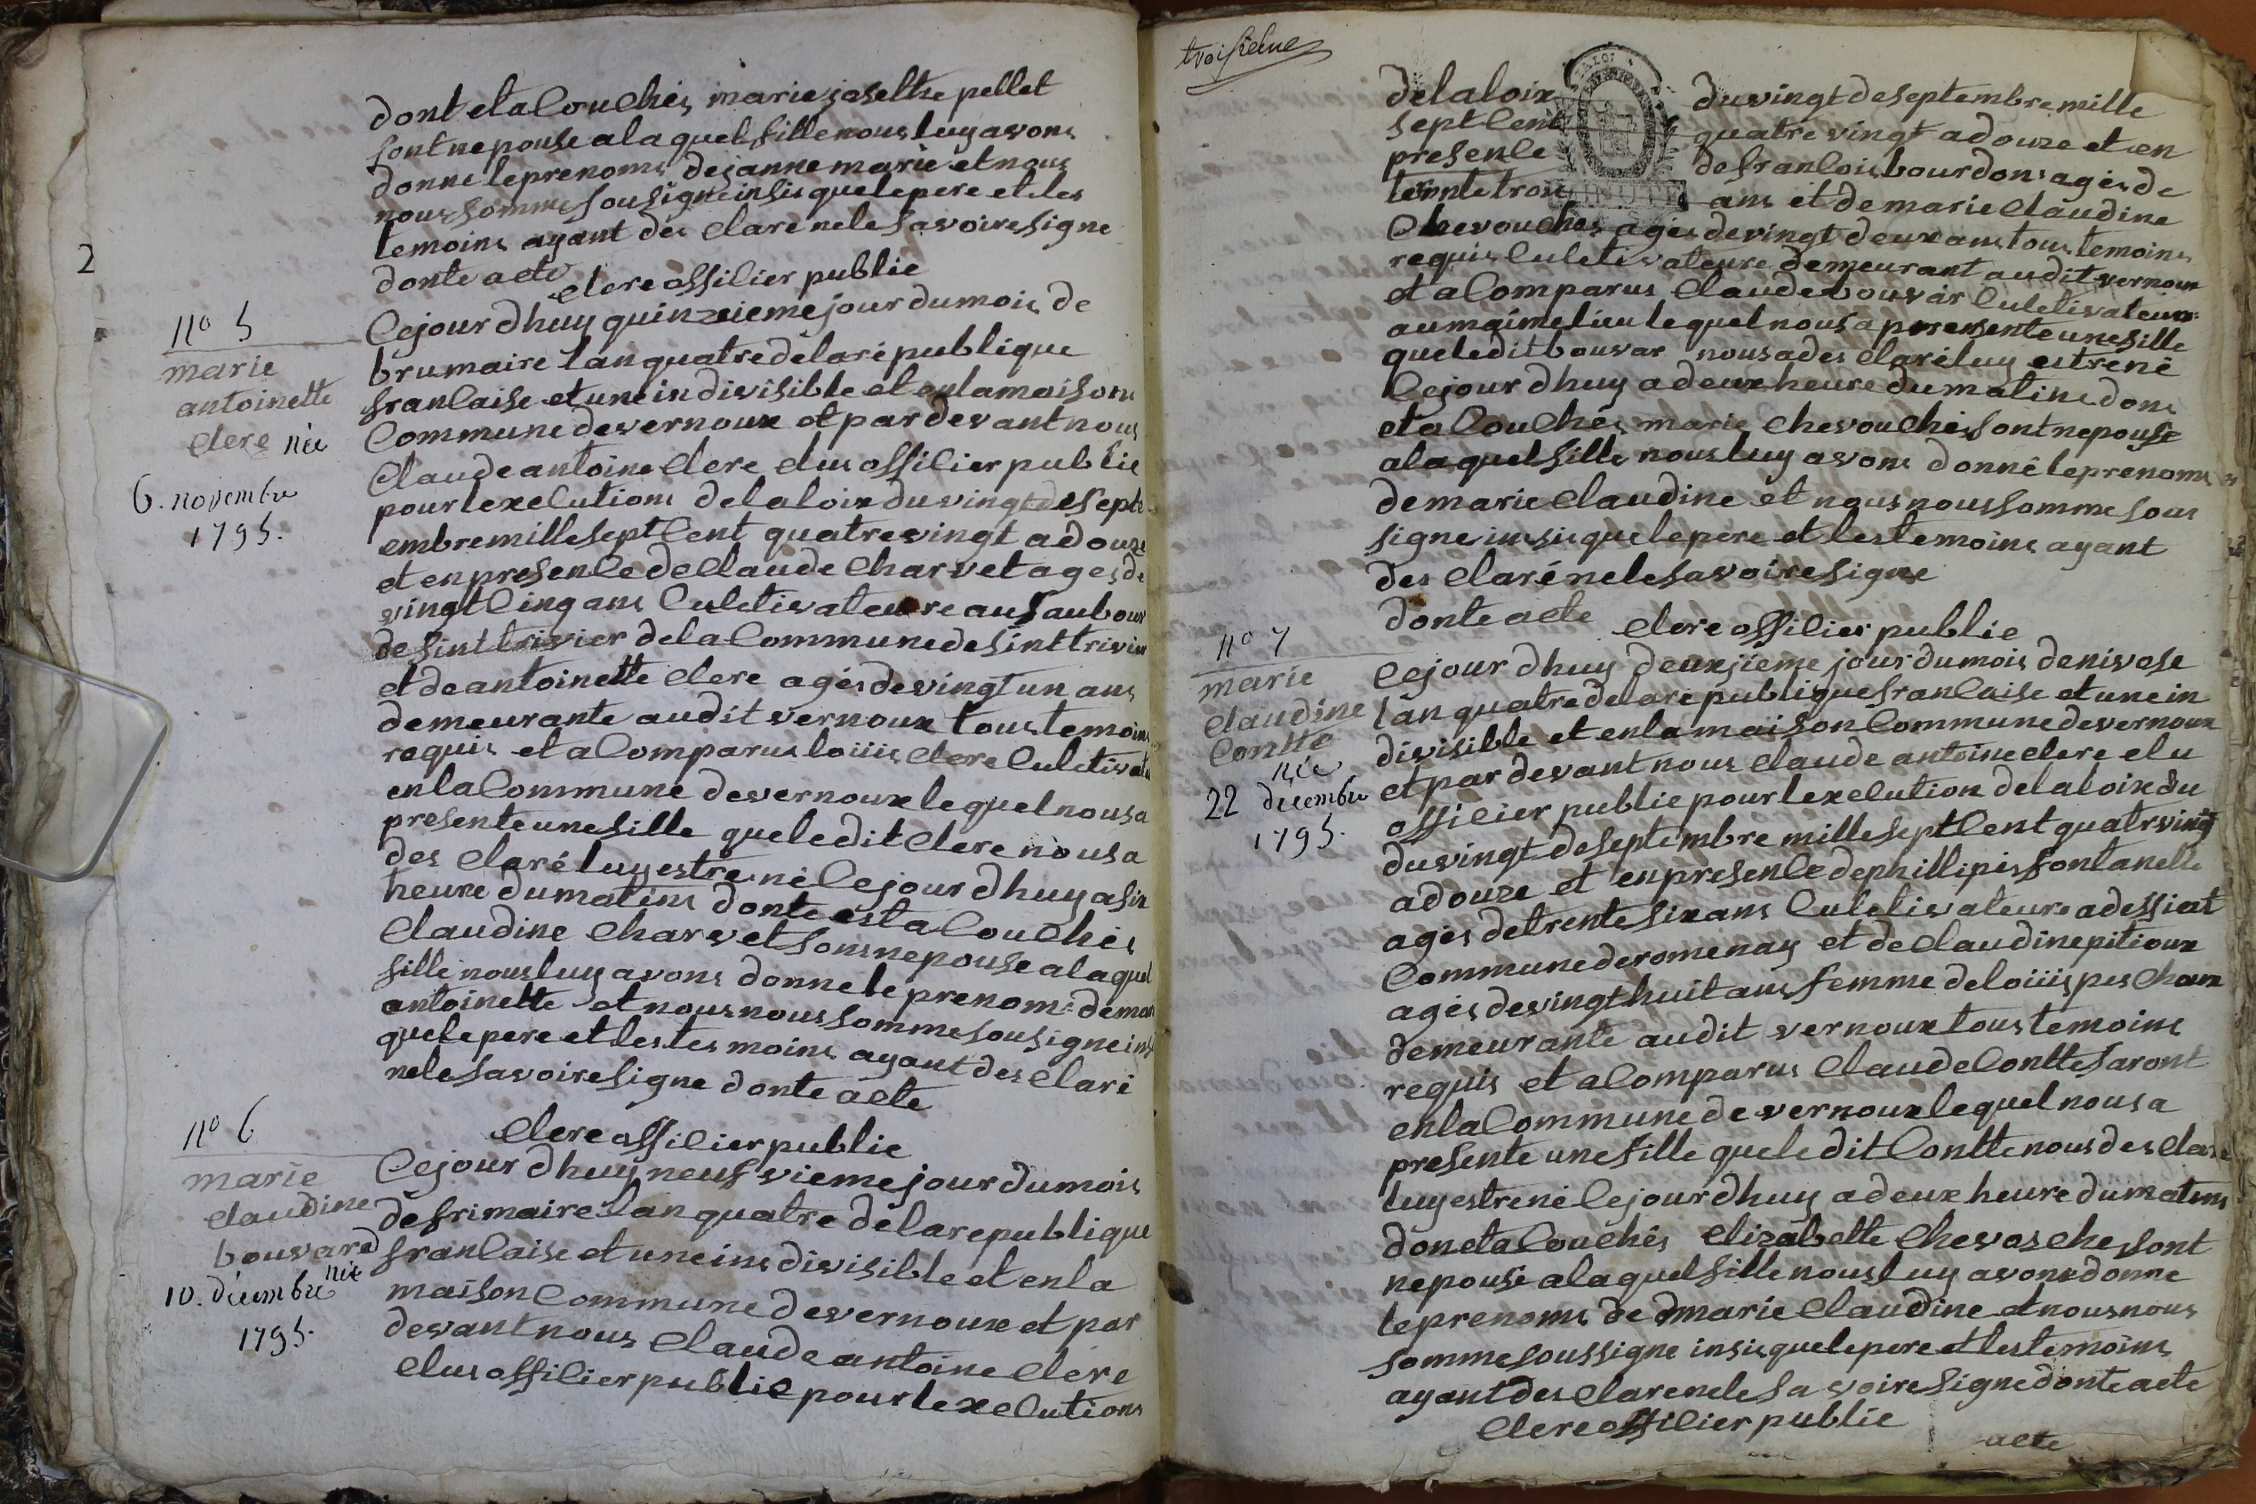 2
dont eta Couchés marie joselthe pellet
sont nepouse a laquel fille nous luy avons
donne le prenoms de janne marie et nous
nous somme sousigne insis que le pere et les
temoins ayant des Clare nele savoire signe
donte acte
Clere officier public
n° 5
marie
antoinette
Clere née
6. novembre
1795.
Cejourdhuy quinzieme jour du mois de
brumaire lan quatre de la republique
francaise et une indivisible et en la maisons
Commune de vernoux et pardevant nous
Claude antoine Clere elus officier public
pour lexecutions de la loix du vingt de sept
embre mille sept Cent quatre vingt a douze
et en presence de Claude Charvet ages de
vingt Cinq ans Culetivateure au faubour
de sint trivier de la Commune de sint trivier
et de antoinette Clere agés de vingt un ans
demeurante audit vernoux tous temoins
requis et a Comparus loüis Clere Culetivate
en la Commune de vernoux lequel nous a
presente une fille que le dit Clere nous a
des Claré luy estre né Cejourdhuy a six
heure du matins donte esta Couchés
Claudine Charvet sons nepouse a laquel
fille nous luy avons donne le prenom de mari
antoinette et nous nous somme sousigne ins
que le pere et les tes moins ayant des Clari
nele savoire signe donte acte
Clere officier public
n° 6
marie
claudine
bouvard
née
10. décembre
1795.
Cejourdhuy neuf vieme jour du mois
de frimaire lan quatre de la republique
francaise et une ins divisible et en la
maison Commune de vernoux et par
devant nous Claude antoine Clere
elus officier public pour lexecutions
troisieme
de la loix du vingt de septembre mille
sept Cent quatre vingt a douze et en
presence de francois bourdons agés de
trinte trois ans et de marie Claudine
Chevouches agés de vingt deux ans tous temoins
requis Culetivateure demeurant audit vernoux
et a Comparus Claude bouvar Culetivateur
au maime lieu lequel nous a presente une fille
que le dit bouvar nous a des Claré luy estre né
Cejourdhuy a deux heure du matins dons
eta Couchés marie Chevouches sont nepouse
a laquel fille nous luy avons donné le prenoms
de marie Claudine et nous nous somme sous
signe insis que le pere et les temoins ayant
des Claré nele savoire signe
donte acte
Clere officier public
n° 7
marie
claudine
Contte
née
22 décembre
1795.
Cejourdhuy deuxjieme jour du mois de nivose
lan quatre de la re publique francaise et une in
divisible et en la maison Commune de vernoux
et par devant nous Claude antoine Clere elu
officier public pour lexecution de la loix du
du vingt de septembre mille sept Cent quatrvingt
a douze et en presence de phillipes fontanelle
agés de trente six ans Culetivateure a dessieat
Commune de romenay et de Claudine pitioux
agés de vingt huit ans femme de loüis pes Chaux
demeurante audit vernoux tous temoins
requis et a Comparus Claude Contte saront
en la Commune de vernoux lequel nous a
presente une fille que le dit Contte nous des Clare
luy estre né Cejourdhuy a deux heure du matins
don eta Couchés Elizabette Chevosche sont
nepouse a laquel fille nous luy avons donne
le prenoms de marie Claudine et nous nous
somme soussigne insis que le pere et les temoins
ayant des Clare nele savoire signe donte acte
Clere officier public
acte